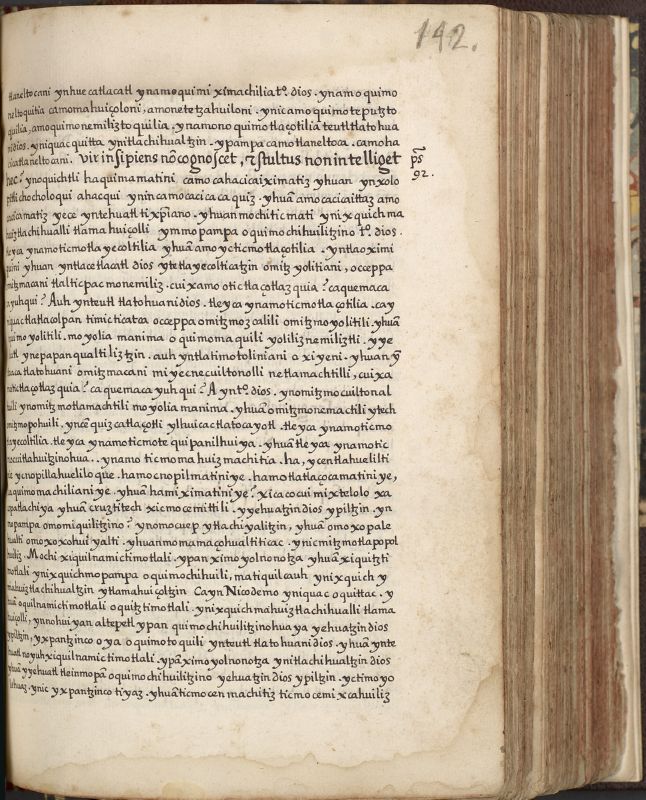 142.
tlaneltocani yn hue catlacatl ynamo quimi ximachilia to. dios. ynamo quimo
neltoquitia camomahuiçoloni, amonetetzahuiloni. ynic amo quimoteputzto
quilia, amo quimonemiliztoquilia, ynamono quimotlaçotilia teutl tlatohua
ni dios. yniquac quitta ynitlachihualtzin. ypampa camo tlaneltoca. camo ha
cicatlaneltocani. Vir insipiens nō cognoscet, & stultus non intelliget
ps
92.
hec. ynoquichtli haquimamatini camo cahacicaiximatiz yhuan ynxolo
pitli chocholoqui ahacqui ynin camo cacicacaquiz. yhuā amo cacicaittaz amo
cacicamatiz yece yntehuatl tixpiano. yhuan mochi ticmati ynixquich ma
huiztlachihualli tlamahuiçolli ymmopampa oquimochihuilitzino to. dios.
tleyca ynamo ticmotlayecoltilia yhuā amo yc ticmotlaçotilia. yntlaoximi
quini yhuan yntlacetlacatl dios ytetlayecolticatzin omitzyolitiani, occeppa
omitzmacani tlalticpacmonemiliz. cuix amo otictlaçotlazquia? caquemaca
ca yuhqui? Auh ynteutl tlatohuani dios. tleyca ynamo ticmotlaçotilia. cay
niquac tlatlacolpan timicticatca occeppa omitzmozcalili omitzmoyolitili. yhuā
quimoyolitili. moyolia manima oquimomaquili yoliliznemiliztli. yye
huatl ynepapan qualtiliztzin. auh yntla timotoliniani axi yeni. yhuan yn
aca tlatohuani omitzmacani miyec necuiltonolli netlamachtilli, cuix a
motictlaçotlazquia? caquemaca yuhqui? A ynto. dios. ynomitzmocuiltonal
huili ynomitzmotlamachtili moyolia manima. yhuā omitzmonemactili ytech
omitzmopohuili, yncēquizcatlaçotli ylhuicac tlatocayotl. tleyca ynamo ticmo
tlayecoltilia. tleyca ynamo ticmotequipanilhuiya. yhuā tleyca ynamo tic
mocuitlahuitzinohua.. ynamo ticmomahuizmachitia. ha, ycentlahuelilti
ic ycnopillahueliloque. hamo cnopilmatiniye. hamo tlatlaçocamatiniye,
aquimomachilianiye. yhuā hamiximatiniye? xicacocui mixtelolo xa
copatlachiya yhuā cruztitech xicmocemittili. yyehuatzin dios ypiltzin. yn
mopampa omomiquilitzino? ynomocuep ytlachiyaliztzin, yhuā omoxopale
hualti omoxoxohuiyalti. yhuan momamaçohualtiticac. ynic mitzmotlapopol
huiliz. Mochi xiquilnamictimotlali. ypan ximoyolnonotza yhuā xiquitzti
motlali ynixquich mopampa oquimochihuili, matiquilcauh ynixquich y
mahuiztlachihualtzin ytlamahuiçoltzin Ca yn Nicodemo yniquac oquittac. y
huā oquilnamictimotlali oquitztimotlali. ynixquich mahuiztlachihualli tlama
huiçolli, ynnohuiyan altepetl ypan quimochihuilitzinohuaya yehuatzin dios
ypiltzin, yxpantzinco oya oquimotoquili ynteutl tlatohuani dios. yhuā ynte
huatl no yuh xiquilnamictimotlali. ypā ximoyolnonotza ynitlachihualtzin dios
yhuā yyehuatl tlein mopā oquimochihuilitzino yehuatzin dios ypiltzin. yctimoyo
lehuaz. ynic yxpantzinco tiyaz. yhuā ticmocenmachitiz ticmocemixcahuiliz